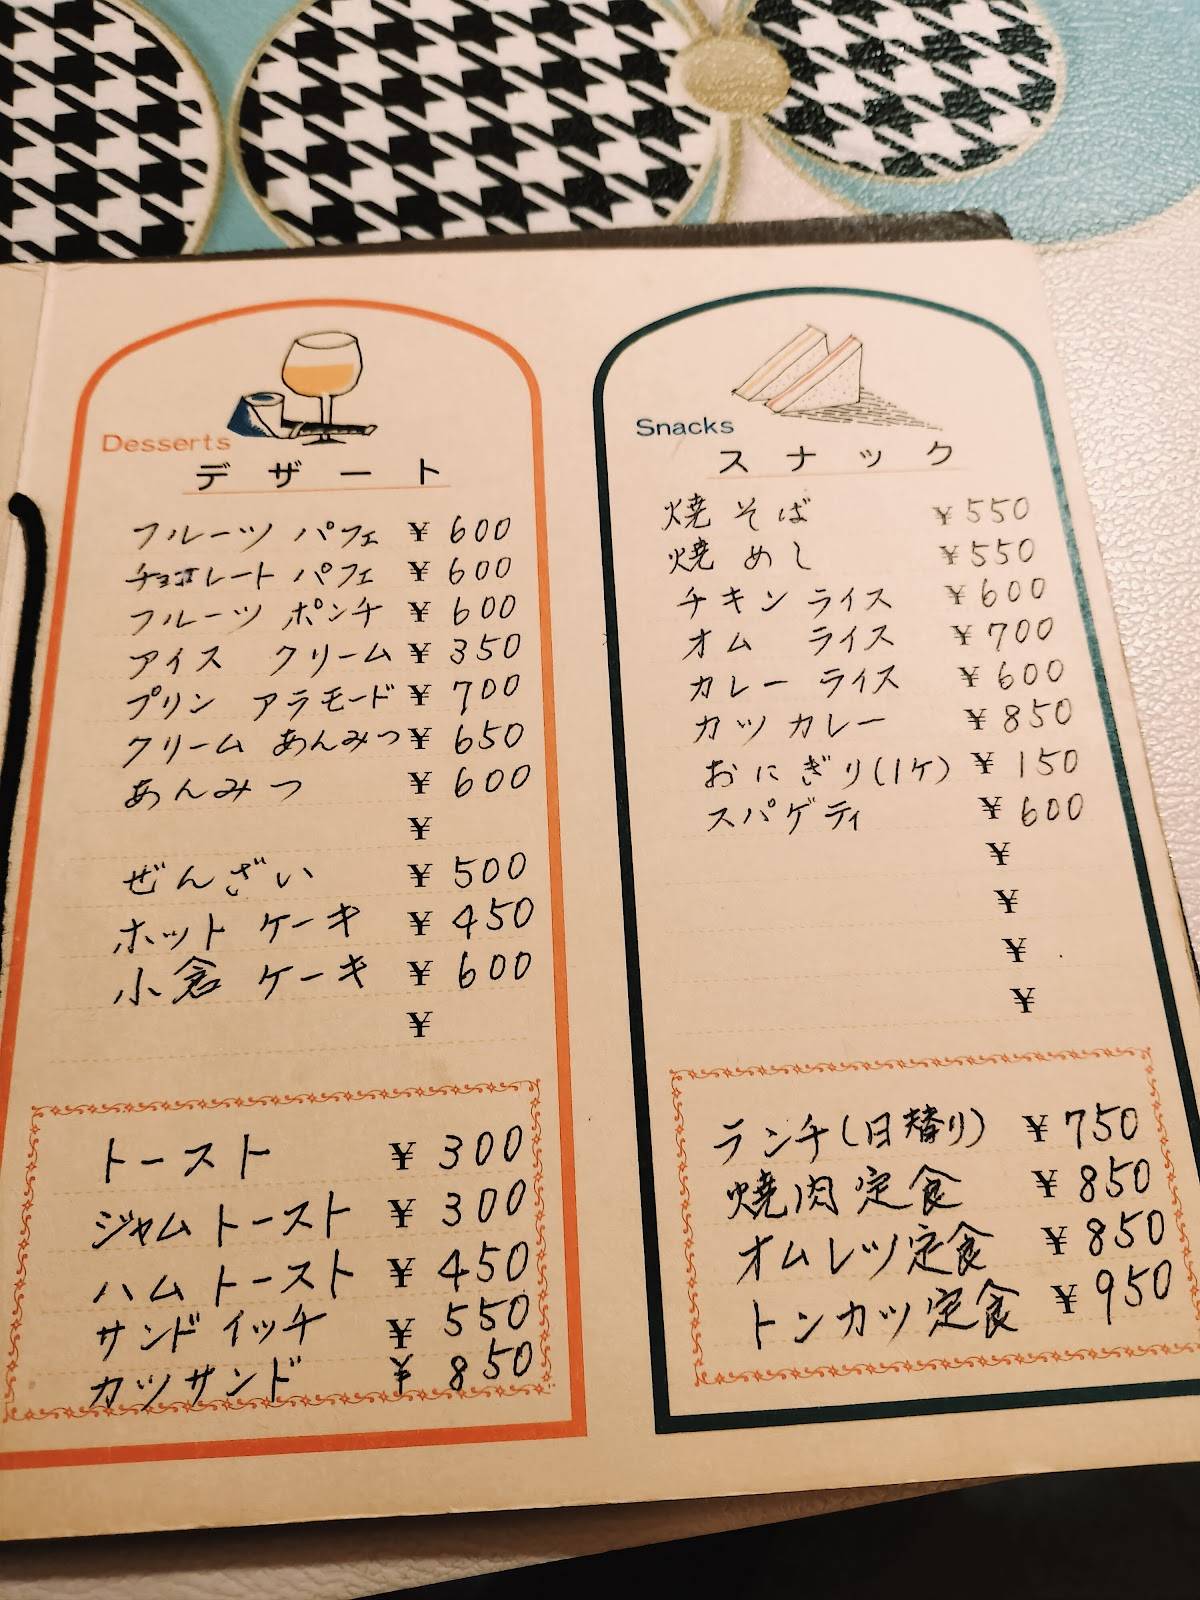 Desserts
デザート
フルーツ パフェ ¥ 600
チョコレート パフェ ¥ 600
フルーツ ポンチ ¥ 600
アイス クリーム ¥ 350
プリン アラモード ¥ 700
クリーム あんみつ ¥ 650
あんみつ ¥ 600
¥
ぜんざい ¥ 500
ホット ケーキ ¥ 450
小倉 ケーキ ¥ 600
¥
トースト ¥ 300
ジャム トースト ¥ 300
ハム トースト ¥ 450
サンド イッチ ¥ 550
カツサンド ¥ 850
Snacks
スナック
焼そば ¥ 550
焼めし ¥ 550
チキン ライス ¥ 600
オム ライス ¥ 700
カレー ライス ¥ 600
カツ カレー ¥ 850
おにぎり(1ケ) ¥ 150
スパゲティ ¥ 600
¥
¥
¥
¥
ランチ(日替り) ¥ 750
焼肉定食 ¥ 850
オムレツ定食 ¥ 850
トンカツ定食 ¥ 950